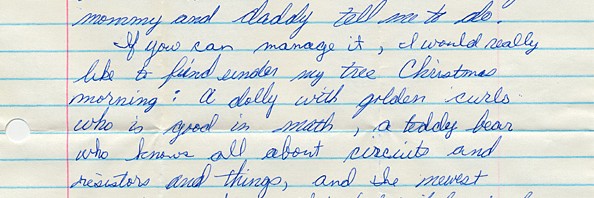 mommy and daddy tell me to do.
If you can manage it, I would really
like to find under my tree Christmas
morning: A dolly with golden curls
who is good in math, a teddy bear
who knows all about circuits and
resistors and things, and the newest